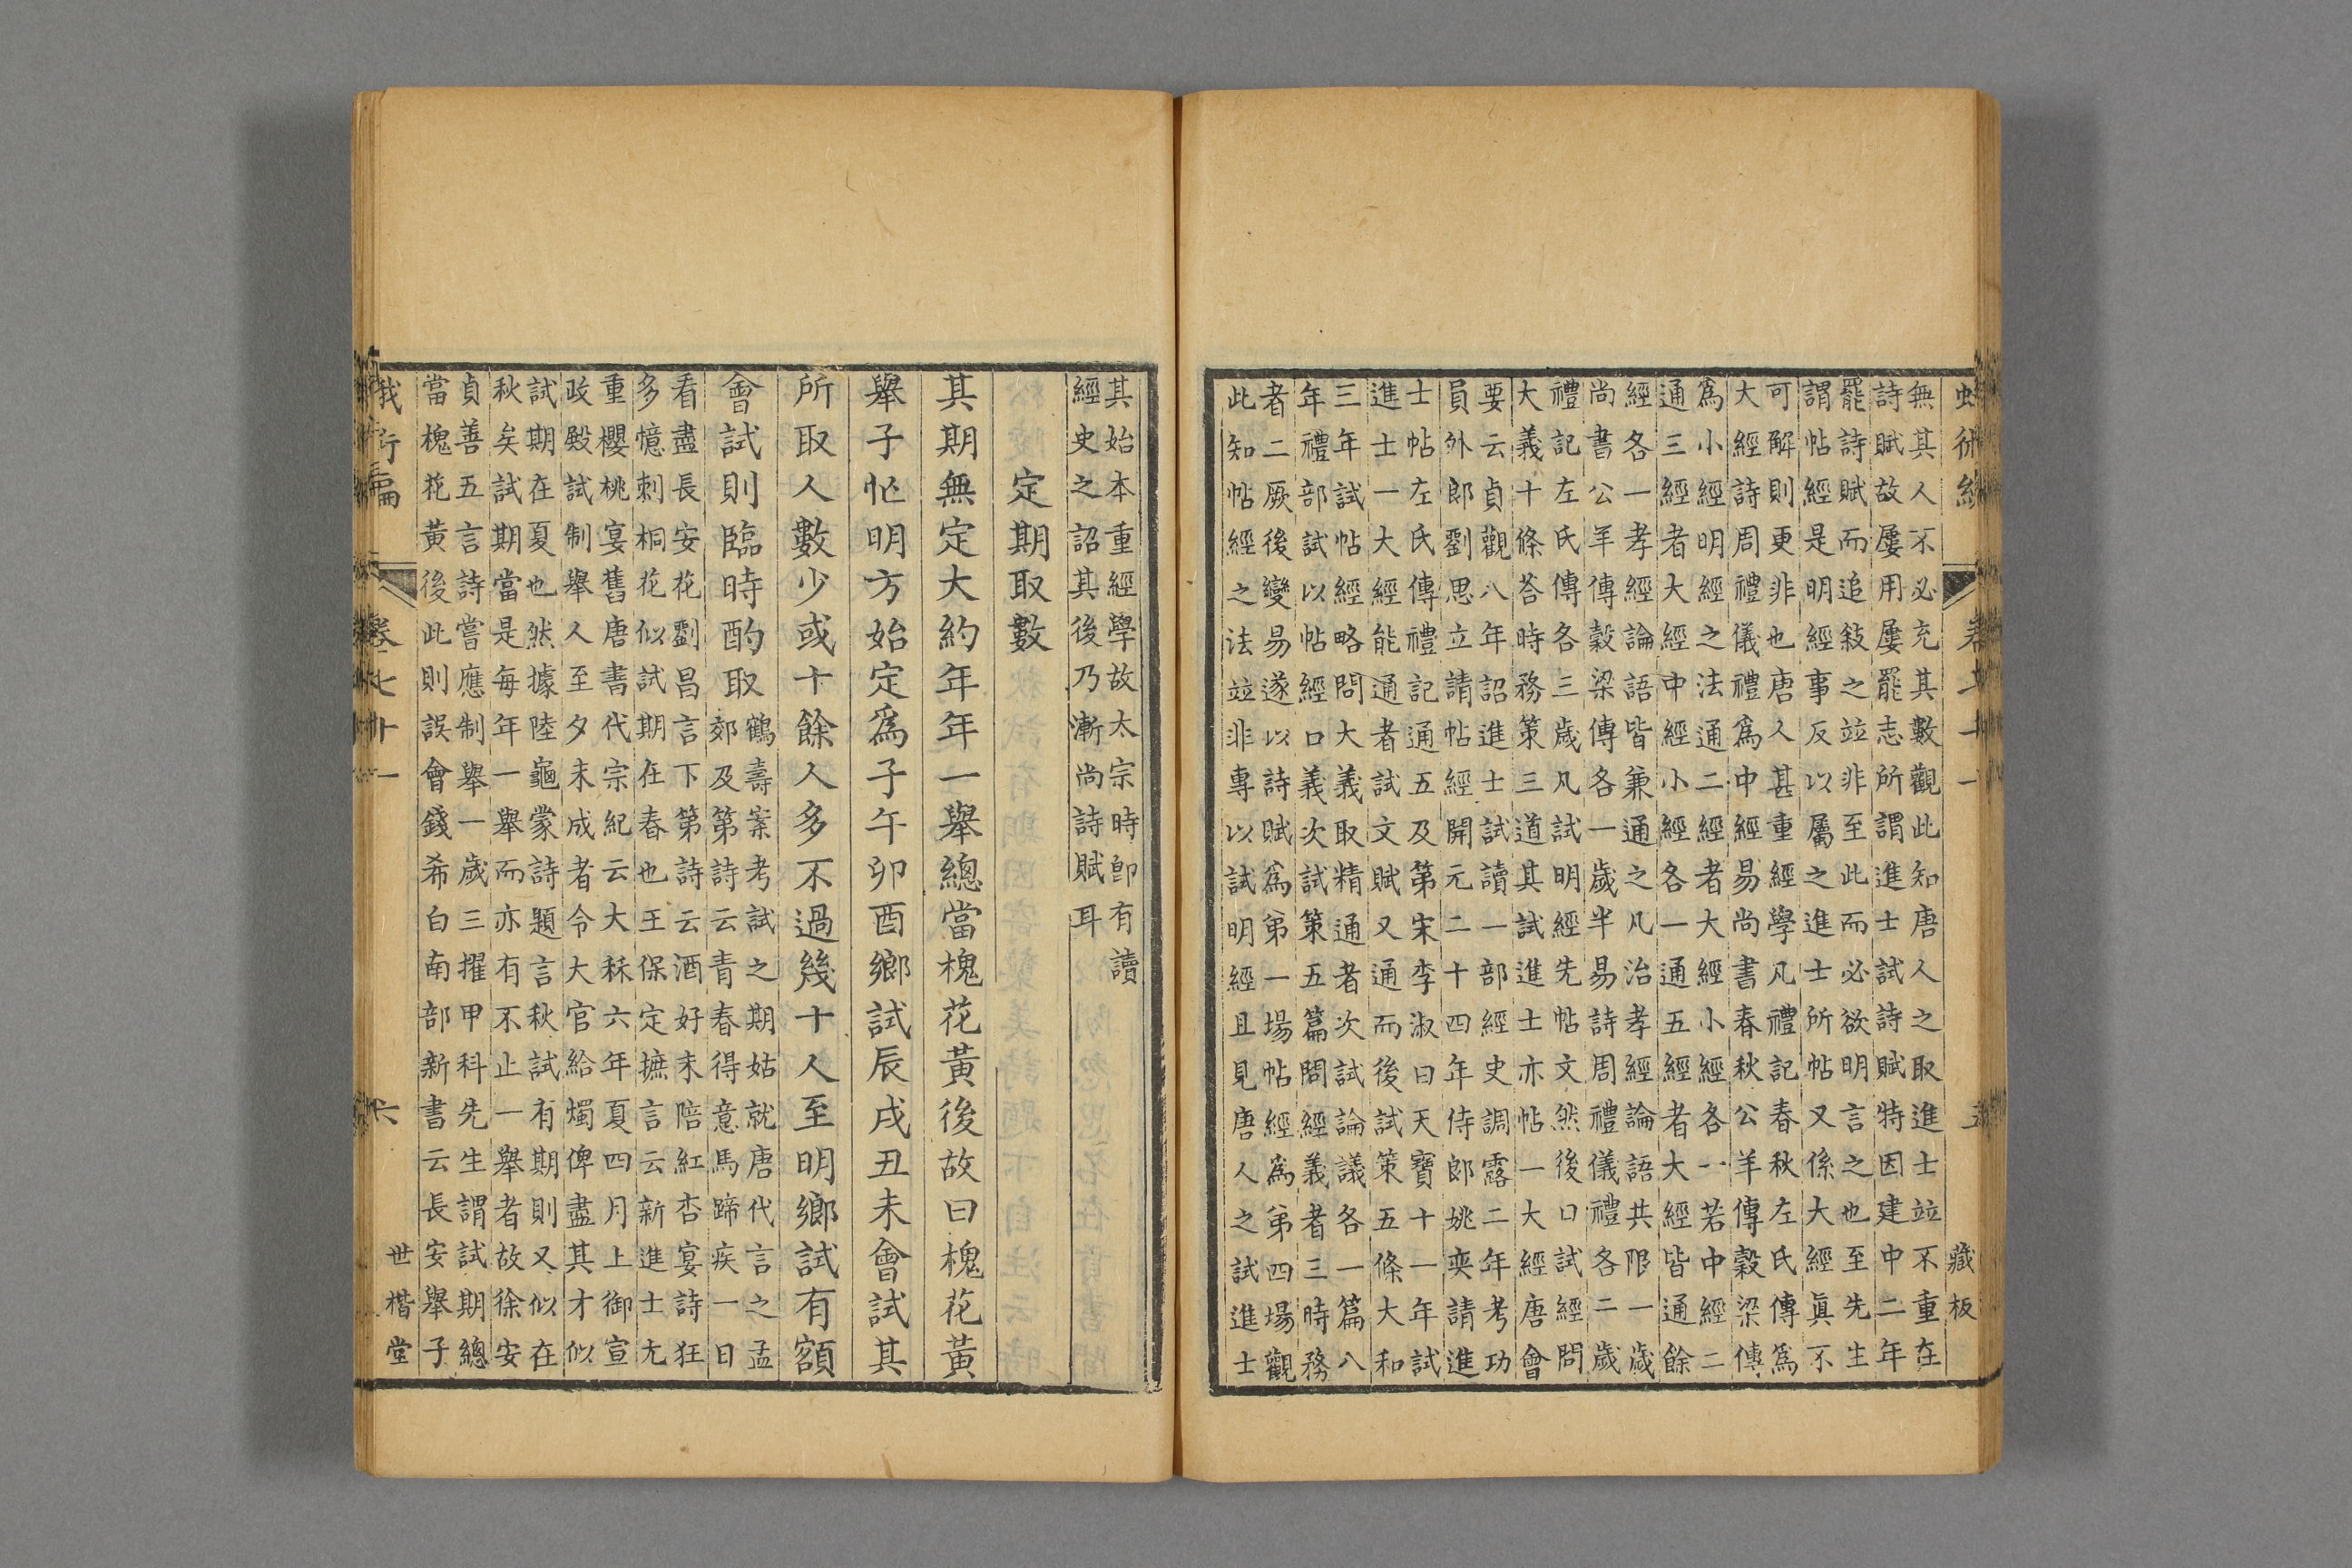 卷七十一
五
藏板
無其人不必充其數觀此知唐人之取進士竝不重在
詩賦故屢用屢罷志所謂進士試詩賦特因建中二年
罷詩賦而追敍之竝非至此而必欲明言之也至先生
謂帖經是明經事反以屬之進士所帖又係大經眞不
可解則更非也唐人甚重經學凡禮記春秋左氏傳爲
大經詩周禮儀禮爲中經易尚書春秋公羊傳穀梁傳
爲小經明經之法通二經者大經小經各一若中經二
通三經者大經中經小經各一通五經者大經皆通餘
經各一孝經論語皆兼通之凡治孝經論語共限一歲
尚書公羊傳穀梁傳各一歲半易詩周禮儀禮各二歲
禮記左氏傳各三歲凡試明經先帖文然後口試經問
大義十條荅時務策三道其試進士亦帖一大經唐會
要云貞觀八年詔進士試讀一部經史調露二年考功
員外郎劉思立請帖經開元二十四年侍郎姚奕請進
士帖左氏傳禮記通五及第宋李淑曰天寶十一年試
進士一大經能通者試文賦又通而後試策五條大和
三年試帖經略問大義取精通者次試論議各一篇八
年禮部試以帖經口義次試策五篇問經義者三時務
者二厥後變易遂以詩賦爲第一場帖經爲第四場觀
此知帖經之法竝非專以試明經且見唐人之試進士
其始本重經學故太宗時卽有讀
經史之詔其後乃漸尚詩賦耳
定期取數
其期無定大約年年一舉總當槐花黃後故曰槐花黃
舉子忙明方始定爲子午卯酉鄉試辰戌丑未會試其
所取人數少或十餘人多不過幾十人至明鄉試有額
會試則臨時酌取
鶴壽案考試之期姑就唐代言之孟
郊及第詩云青春得意馬蹄疾一日
看盡長安花劉昌言下第詩云酒好未陪紅杏宴詩狂
多憶刺桐花似試期在春也王保定摭言云新進士尤
重櫻桃宴舊唐書代宗紀云大秝六年夏四月上御宣
政殿試制舉人至夕未成者令大官給燭俾盡其才似
試期在夏也然據陸龜蒙詩題言秋試有期則又似在
秋矣試期當是每年一舉而亦有不止一舉者故徐安
貞善五言詩嘗應制舉一歲三擢甲科先生謂試期總
當槐花黃後此則誤會錢希白南部新書云長安舉子
卷七十一
六
世楷堂